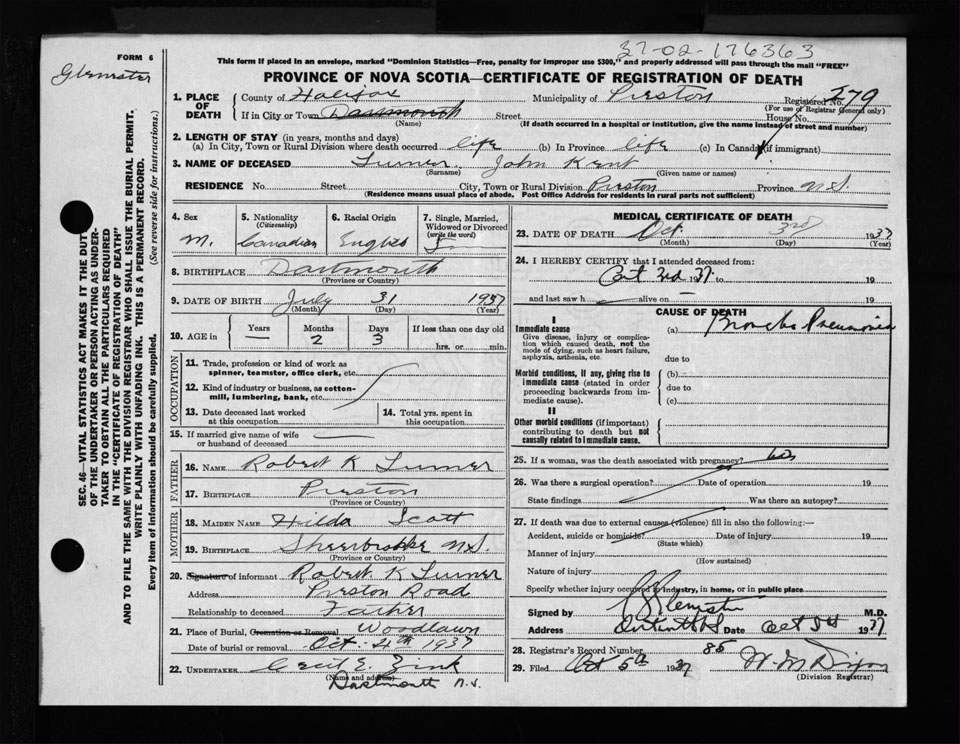 37-02-176363
FORM 6
Glenister
This form if placed in an envelope, marked "Dominion Statistics—Free, penalty for improper use $300," and properly addressed will pass through the mail "FREE"
PROVINCE OF NOVA SCOTIA—CERTIFICATE OF REGISTRATION OF DEATH
1. PLACE OF DEATH
County of Halifax Municipality of Preston Registered No. 279
(For use of Registrar General only)
If in City or Town Dartmouth Street House No.
(Name) (If death occurred in a hospital or institution, give the name instead of street and number)
2. LENGTH OF STAY (in years, months and days)
(a) In City, Town or Rural Division where death occurred life (b) In Province life (c) In Canada (if immigrant)
3. NAME OF DECEASED Turner John Kent
(Surname) (Given name or names)
RESIDENCE No. Street City, Town or Rural Division Preston Province N.S.
(Residence means usual place of abode. Post Office Address for residents in rural parts not sufficient)
4. Sex M.
5. Nationality (Citizenship) Canadian
6. Racial Origin English
7. Single, Married, Widowed or Divorced (write the word) S
8. BIRTHPLACE Dartmouth
(Province or Country)
9. DATE OF BIRTH July 31 1937
(Month) (Day) (Year)
10. AGE in Years — Months 2 Days 3 If less than one day old
hrs. or min.
OCCUPATION
11. Trade, profession or kind of work as spinner, teamster, office clerk, etc.
12. Kind of industry or business, as cotton-mill, lumbering, bank, etc.
13. Date deceased last worked at this occupation
14. Total yrs. spent in this occupation
15. If married give name of wife or husband of deceased —
FATHER
16. NAME Robert K Turner
17. BIRTHPLACE Preston
(Province or Country)
MOTHER
18. MAIDEN NAME Hilda Scott
19. BIRTHPLACE Sherbrooke N.S.
(Province or Country)
20. Signature of informant Robert K Turner
Address Preston Road
Relationship to deceased Father
21. Place of Burial, Cremation or Removal Woodlawn
Date of burial or removal Oct. 4th 1937
22. UNDERTAKER Cecil E. Zink
(Name and address)
Dartmouth N.S.
MEDICAL CERTIFICATE OF DEATH
23. DATE OF DEATH Oct 3rd 1937
(Month) (Day) (Year)
24. I HEREBY CERTIFY that I attended deceased from:
Oct 3rd 1937 to 19
and last saw h alive on — 19
CAUSE OF DEATH
I
Immediate cause
Give disease, injury or complication which caused death, not the mode of dying, such as heart failure, asphyxia, asthenia, etc.
(a) Broncho Pneumonia
due to
Morbid conditions, if any, giving rise to immediate cause (stated in order proceeding backwards from immediate cause).
(b)
due to
(c)
II
Other morbid conditions (if important) contributing to death but not causally related to immediate cause.
25. If a woman, was the death associated with pregnancy? no
26. Was there a surgical operation? Date of operation 19
State findings Was there an autopsy?
27. If death was due to external causes (violence) fill in also the following:—
Accident, suicide or homicide? Date of injury 19
(State which)
Manner of injury
(How sustained)
Nature of injury
Specify whether injury occurred in industry, in home, or in public place
Signed by Glenister M.D.
Address Date Oct 3rd 1937
28. Registrar's Record Number 85
29. Filed Oct 5th 1937
(Division Registrar)
SEC. 46—VITAL STATISTICS ACT MAKES IT THE DUTY
OF THE UNDERTAKER OR PERSON ACTING AS UNDER-
TAKER TO OBTAIN ALL THE PARTICULARS REQUIRED
IN THE "CERTIFICATE OF REGISTRATION OF DEATH"
AND TO FILE THE SAME WITH THE DIVISION REGISTRAR WHO SHALL ISSUE THE BURIAL PERMIT.
WRITE PLAINLY WITH UNFADING INK. THIS IS A PERMANENT RECORD.
Every item of information should be carefully supplied. (See reverse side for instructions.)